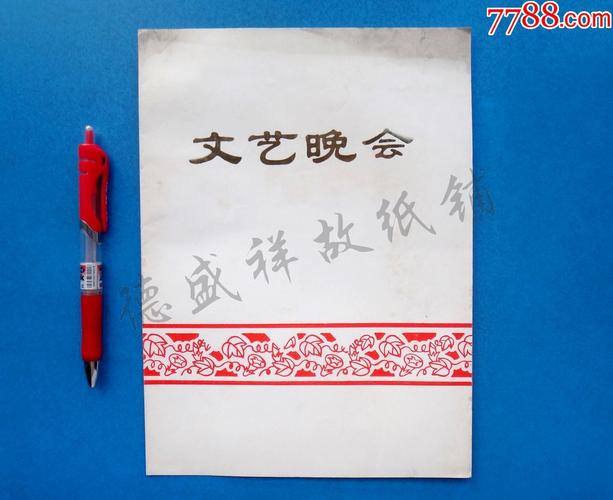 7788.com
文艺晚会
德盛祥故纸铺